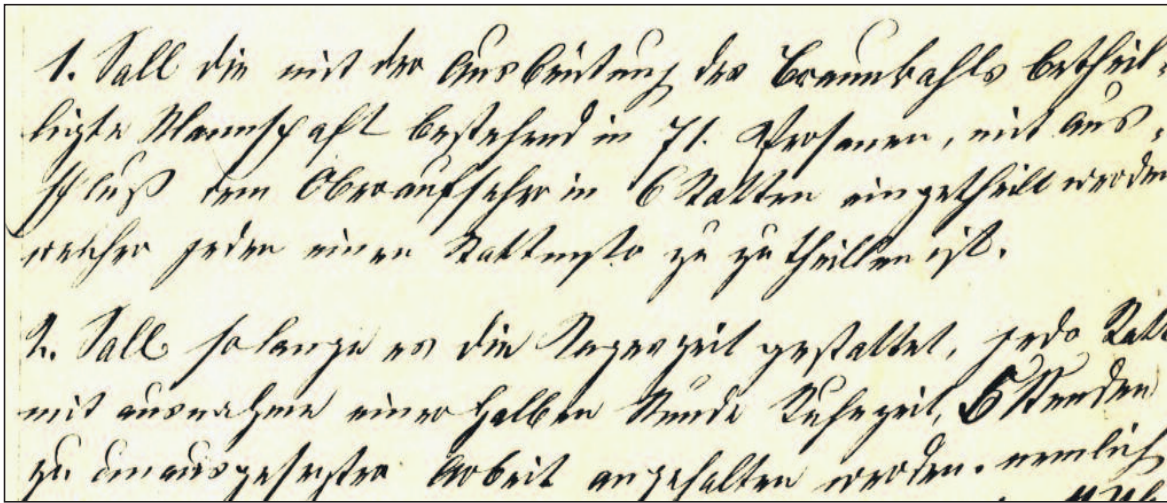 1. Soll die mit der Ausbeutung des Braunkohls betheil-
ligte Mannschaft bestehend in 71. Personen, mit Aus-
schluß dem Oberaufseher in 6 Rotten eingetheilt werden
welcher jeder einen Rottmstr zu zu theillen ist.
2. Soll so lange es die Tageszeit gestattet, jede Rott
mit ausnahme einer halben Stunde Ruhezeit, 6 Stunden
zu unausgesetzter Arbeit angehalten werden. nemlich